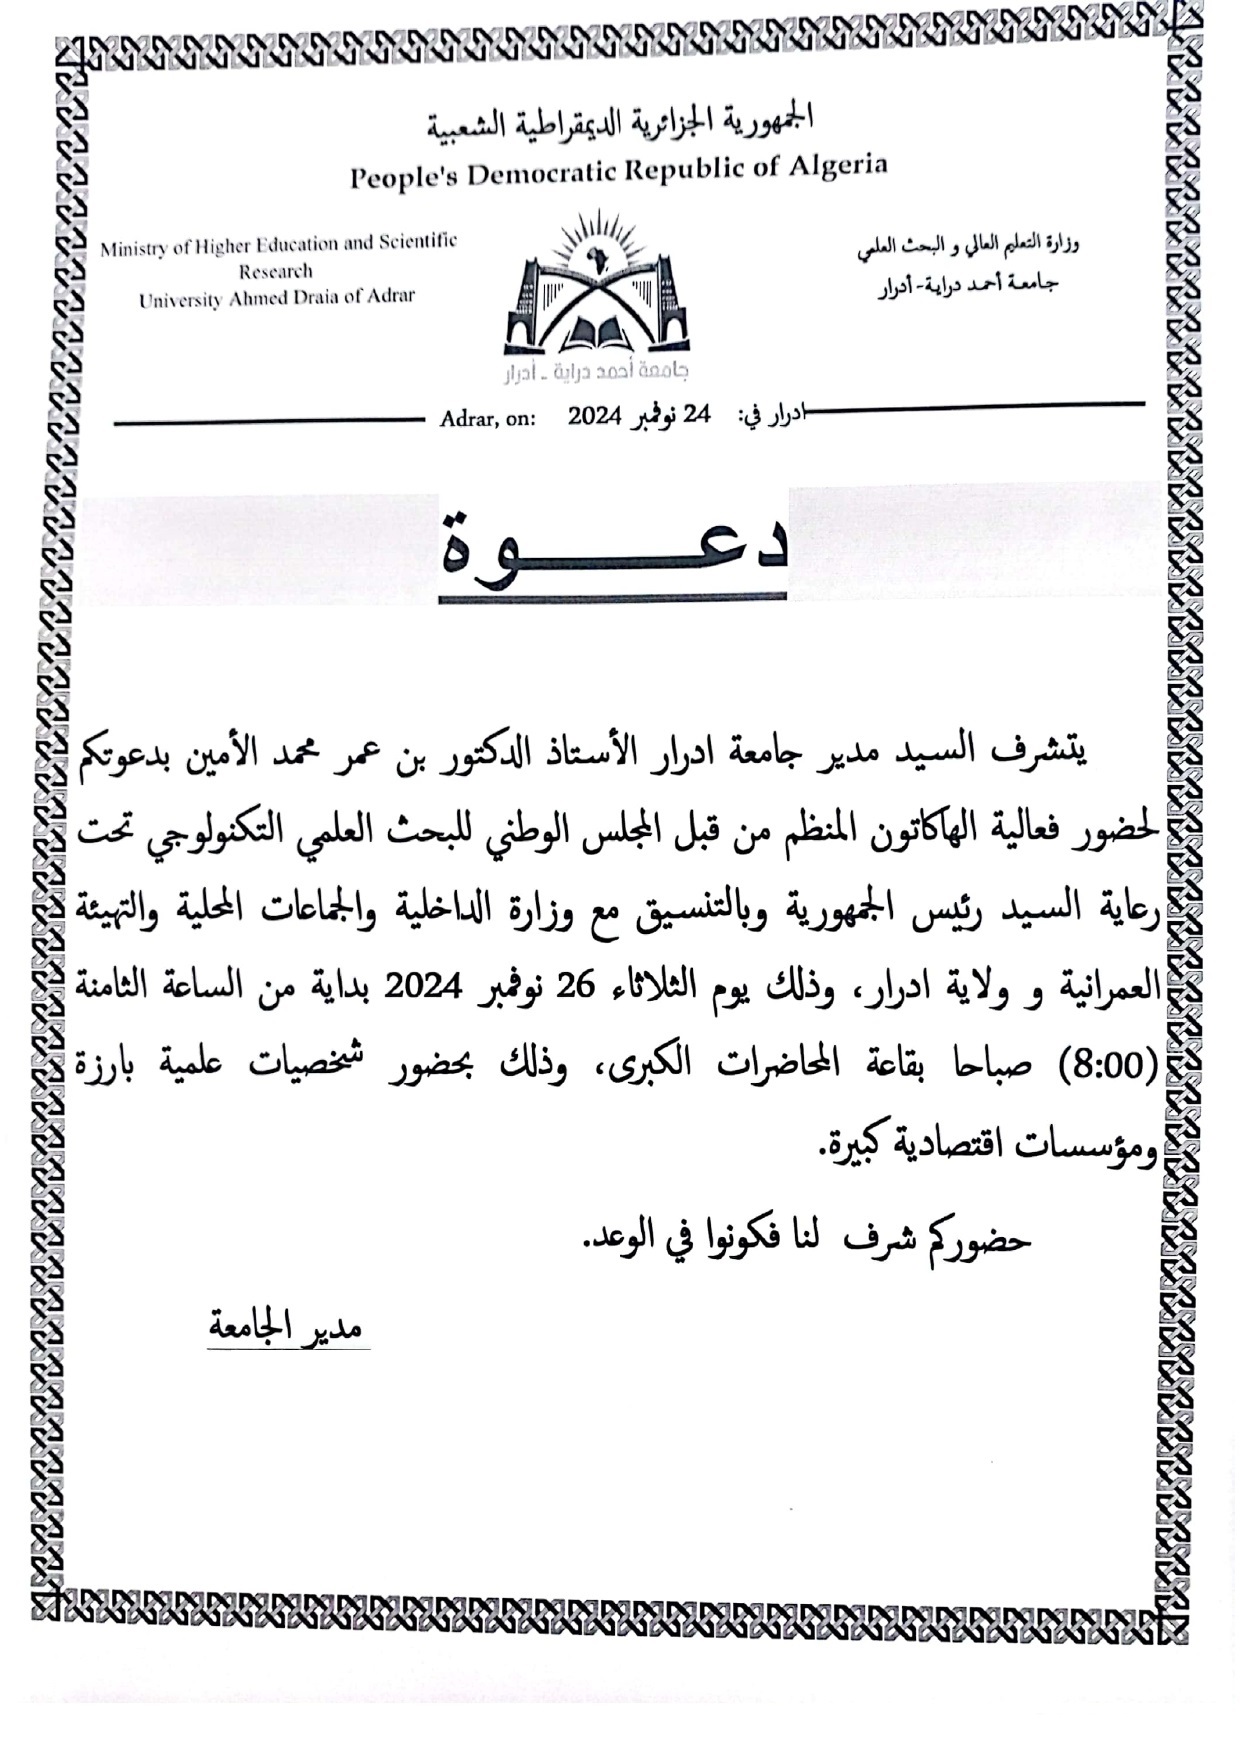 الجمهورية الجزائرية الديمقراطية الشعبية
People's Democratic Republic of Algeria
وزارة التعليم العالي و البحث العلمي
جامعة أحمد دراية- أدرار
Ministry of Higher Education and Scientific
Research
University Ahmed Draia of Adrar
جامعة أحمد دراية - أدرار
ادرار في: 24 نوفمبر 2024 Adrar, on:
دعـــــوة
يتشرف السيد مدير جامعة ادرار الأستاذ الدكتور بن عمر محمد الأمين بدعوتكم
لحضور فعالية الهاكاتون المنظم من قبل المجلس الوطني للبحث العلمي التكنولوجي تحت
رعاية السيد رئيس الجمهورية وبالتنسيق مع وزارة الداخلية والجماعات المحلية والتهيئة
العمرانية و ولاية ادرار، وذلك يوم الثلاثاء 26 نوفمبر 2024 بداية من الساعة الثامنة
(8:00) صباحا بقاعة المحاضرات الكبرى، وذلك بحضور شخصيات علمية بارزة
ومؤسسات اقتصادية كبيرة.
حضوركم شرف لنا فكونوا في الوعد.
مدير الجامعة